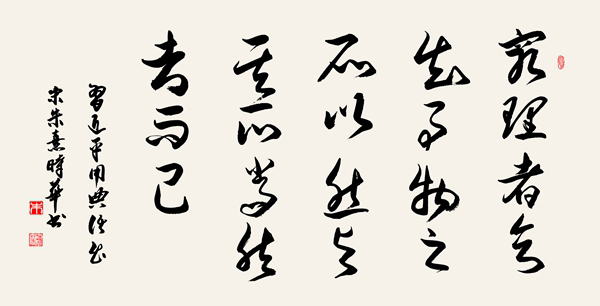 穷理者欲
知事物之
所以然与
其所当然
者而已
習近平用典语出
宋朱熹時華书